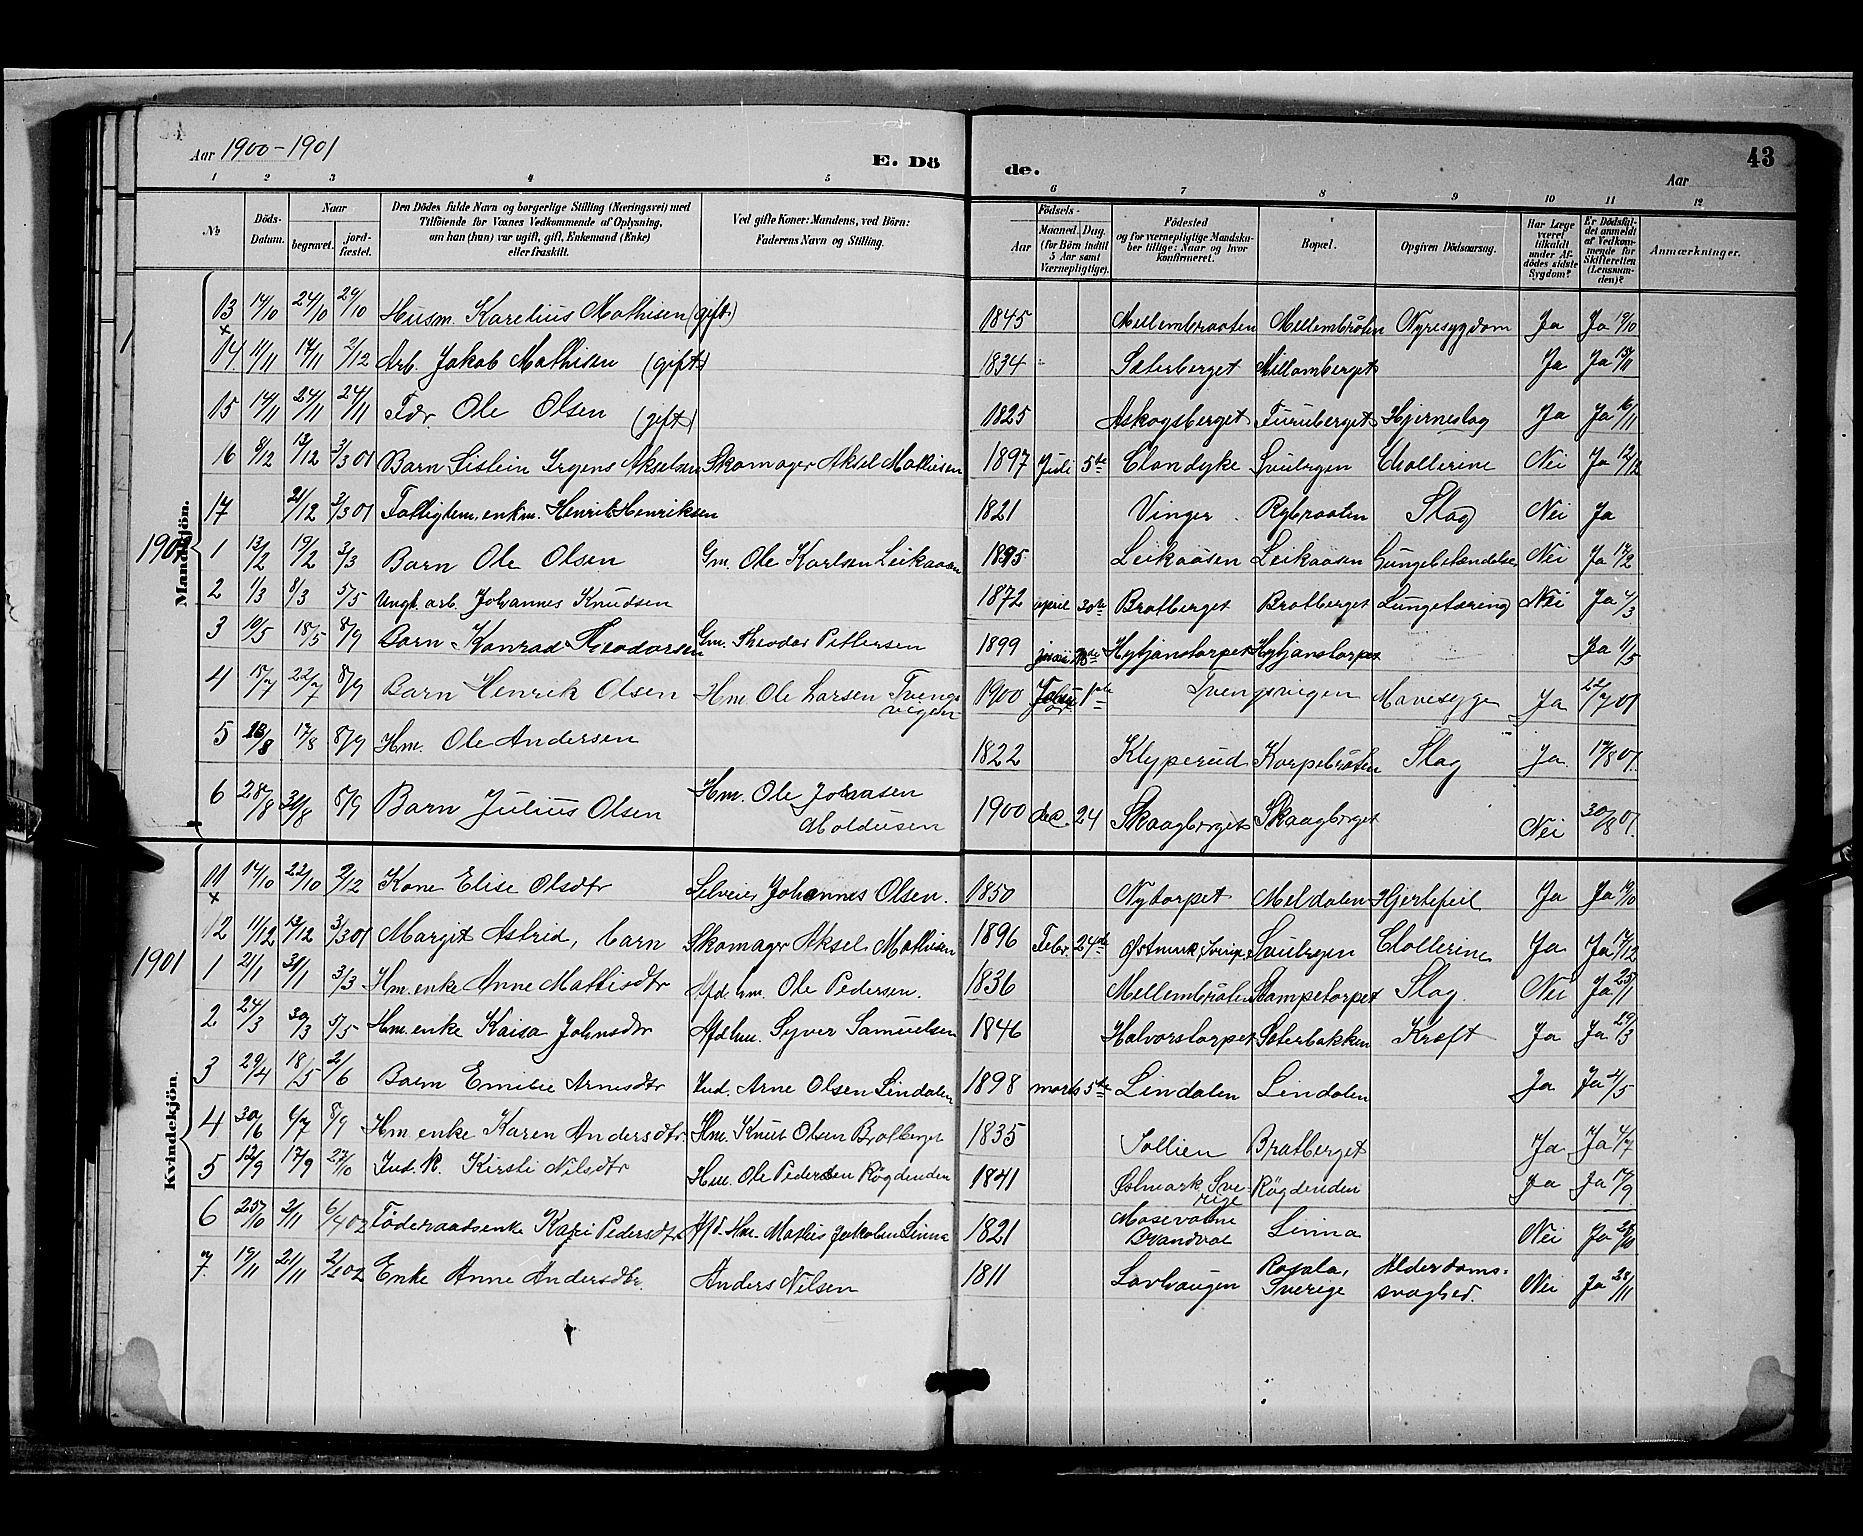 Aar 1900-1901
E. Dö
de.
43
Aar
1 2 3 4 5 6 7 8 9 10 11 12
№
Döds-Datum.
Naar
begravet.
jord-fæstet.
Den Dödes fulde Navn og borgerlige Stilling (Næringsvei) med
Tilföiende for Voxnes Vedkommende af Oplysning,
om han (hun) var ugift, gift, Enkemand (Enke)
eller fraskilt.
Ved gifte Koner: Mandens, ved Börn:
Faderens Navn og Stilling.
Födsels-
Aar
Maaned. Dag.
(for Börn indtil
5 Aar samt
Værnepligtige).
Födested
og for værnepligtige Mandska-
ber tillige: Naar og hvor
konfirmeret.
Bopæl.
Opgiven Dödsaarsag.
Har Læge
været
tilkaldt
under Af-
dödes sidste
Sygdom?
Er Dödsfal-
det anmeldt
af Vedkom-
mende for
Skifteretten
(Lensman-
den)?
Anmærkninger.
Mandkjön.
13 14/10 24/10 29/10 Husm. Karelius Mathisen (gift) 1845 Mellembraaten Mellembråten Nyresygdom Ja Ja 19/10
x
14 11/11 17/11 2/12 Arb. Jakob Mathisen (gift) 1834 Sæterberget Millomberget Ja Ja 15/11
15 14/11 24/11 24/11 Fdr Ole Olsen (gift) 1825 Askogsberget Furuberget Hjerneslag Ja Ja 16/11
16 8/12 13/12 3/3 01 Barn Akselsen Skomager Aksel Mathisen 1897 Juli 5te Clondyke Chollerine Nei Ja 12/12
17 21/12 3/3 01 Fattiglem, enkm. Henrik Henriksen 1821 Vinger Rybraaten Slag Nei Ja
1901
1 13/2 19/2 3/3 Barn Ole Olsen Gm. Ole Karlsen Leikaasen 1895 Leikaåsen Leikaåsen Lungebetændelse Nei Ja 17/2
2 1/3 8/3 5/5 Ungk. arb. Johannes Knudsen 1872 april 30te Bratberget Bratberget Lungetæring Nei Ja 4/3
3 10/5 18/5 8/9 Barn Konrad Theodorsen Gm. Theodor Pettersen 1899 Hytjanstorpet Hytjanstorpet Ja 11/5
4 18/7 22/7 8/9 Barn Henrik Olsen Hm. Ole Larsen Tvengs
vigen 1900 1ste Tvengsvigen Mavesyge Ja 22/7 01
5 13/8 17/8 8/9 Hm. Ole Andersen 1822 Klyperud Korpebråten Slag Ja 17/8 01.
6 28/8 31/8 8/9 Barn Julius Olsen Hm. Ole Johansen
Moldusen 1900 dec. 24 Skaagberget Skaagberget Nei 30/8 01.
Kvindekjön.
11 14/10 22/10 2/12 Kone Elise Olsdtr Selveier Johannes Olsen. 1850 Nytorpet Meldalen Hjertefeil Ja Ja 19/10
x
12 11/12 13/12 3/3 01 Margit Astrid, barn Skomager Aksel Mathisen 1896 Febr. 24de Østmark, Sverige Chollerine Ja Ja 17/12
1901
1 21/1 31/1 3/3 Hm. enke Anne Mathisdtr Afd hm. Ole Pedersen. 1836 Mellembråten Stampetorpet Slag. Nei Ja 25/1
2 24/3 30/3 5/5 Hm. enke Kaisa Johnsdtr Afd hm. Syver Samuelsen 1846 Halvorstorpet Sæterbakken Kræft Ja Ja 29/3
3 29/4 18/5 2/6 Barn Emilie Arnesdtr Ind. Arne Olsen Lindalen 1898 marts 5te Lindalen Lindalen Ja Ja 2/5
4 30/6 6/7 8/9 Hm enke Karen Andersdtr. Hm. Knut Olsen Bratberget 1835 Sollien Bratberget Ja Ja 4/7
5 12/9 17/9 27/10 Ind. K. Kirsti Nilsdtr Hm. Ole Pedersen Røgdenden 1841 Østmark, Sve-
rige Røgdenden Ja Ja 14/9
6 25/10 2/11 6/4 02 Føderaadsenke Kari Pedersdtr Afd. Hm. Mathis Jakobsen Linna 1821 Masevatne
Brandval Linna Nei Ja 28/10
7. 19/11 21/11 2/2 02 Enke Anne Andersdtr. Anders Nilsen 1811 Lavhaugen Rotala,
Sverige Alderdoms-
svaghed. Nei Ja 28/11